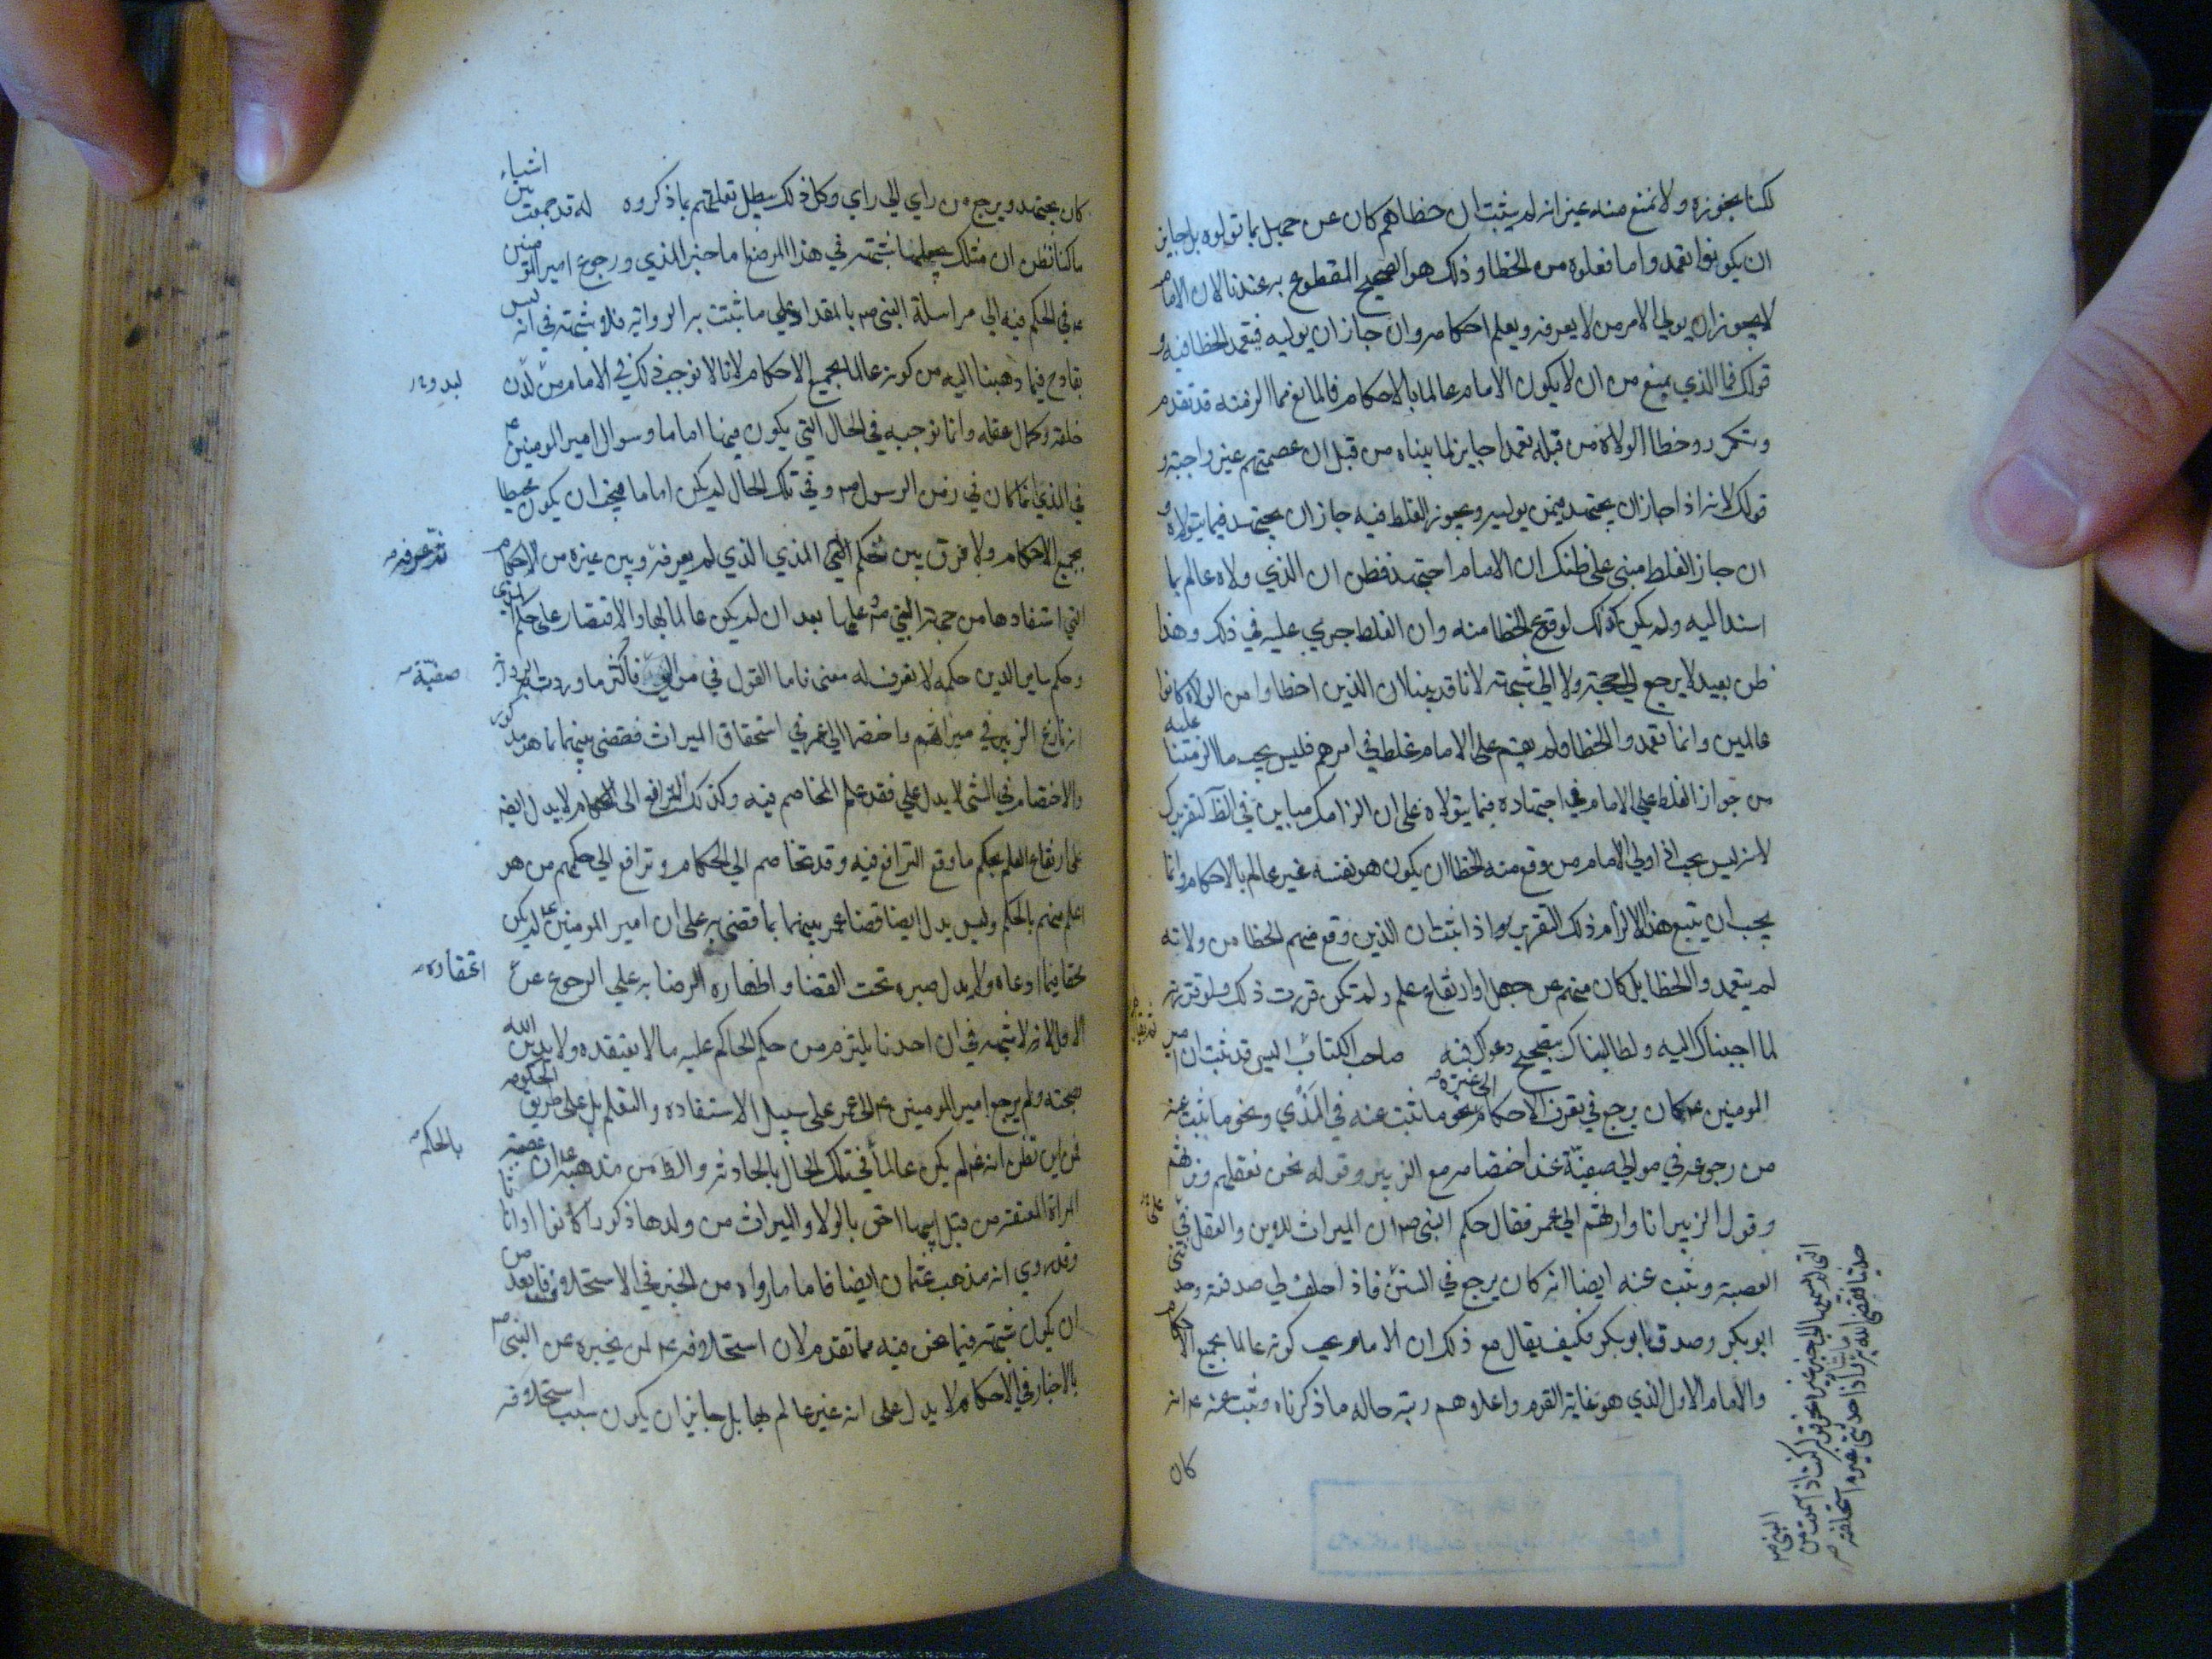 لكنا نجوزه ولا نمنع منه غير انه لم يثبت ان خطاهم كان عن جهل بما تولوه بل جايز
ان يكونوا تعمدوا ما فعلوه من الخطا وذلك هو الصحيح المقطوع به عندنا لان الامام
لا يجوز ان يولي الامر من لا يعرفه ويعلم احكامه وان جاز ان يوليه فيتعمد الخطا فيه و
قولك فما الذي يمنع من ان لا يكون الامام عالما بالاحكام فالمانع مما الزمته قد تقدم
وتكرر وخطا الولاة من قبله تعمدا جايز لما بيناه من قبل ان عصمتهم غير واجبة و
قولك لانه اذا جاز ان يجتهد فيمن يوليه ويجوز الغلط فيه جاز ان يجتهد فيما يتولاه و
ان جاز الغلط مبني على ظنك ان الامام اجتهد فظن ان الذي ولاه عالم بما
اسند اليه ولم يكن كذلك لوقوع الخطا منه وان الغلط جري عليه في ذلك وهذا
ظن بعيد لا يرجع الى حجة ولا الى شبهة لانا قد بينا ان الذين اخطاوا من الولاة كانوا
عالمين وانما تعمدوا الخطا ولم يتم على الامام غلط في امرهم فليس يجب ما الزمتنا عليه
من جواز الغلط على الامام في اجتهاده فيما يتولاه على ان الزامك مباين في الظ لتقريرك
لانه ليس يجب اذا ولي الامام من وقع منه الخطا ان يكون هو نفسه غير عالم بالاحكام وانما
يجب ان يتبع هذا الالزام ذلك التقرير واذا ثبت ان الذين وقع منهم الخطا من ولاته
لم يتعمدوا الخطا بل كان منهم عن جهل او ارتفاع علم ولم تكن قررت ذلك ولو قررته
لما اجبناك اليه ولطالبناك بتصحيح دعواك فيه صاحب الكتاب اليس قد ثبت ان امير
المومنين ع كان يرجع في تعرف الاحكام الى غيره نحو ما ثبت عنه في المذي ونحو ما ثبت عنه
من رجوعه في موالي صفيّة عند اختصامه مع الزبير وقوله نحن نعقلهم ونرثهم
وقول الزبير انا وارثهم الى عمر فقال حكم النبي ص ان الميراث للابن والعقل على
العصبة وثبت عنه ايضا انه كان يرجع في السنن فاذا حلف لي صدقته وحدثني
ابو بكر وصدق ابو بكر فكيف يقال مع ذلك ان الامام يجب كونه عالما بجميع الاحكام
والامام الاول الذي هو غاية القوم واعلاهم رتبة حاله ما ذكرناه وثبت عنه ع انه
كان
كان يجتهد ويرجع من راي الى راي وكل ذلك يبطل تعلقهم بما ذكروه له قد جمعت بين اشياء
ما كنا نظن ان مثلك يجعلها شبهة في هذا الموضع اما خبر المذي ورجوع امير المومنين
ع في الحكم فيه الى مراسلة النبي ص بالمقداد على ما ثبتت به الرواية فلا شبهة في انه ليس
بقادح فيما ذهبنا اليه من كونه عالما بجميع الاحكام لانا لا نوجب ذلك في الامام من لدن
خلقه وكمال عقله وانما نوجبه في الحال التي يكون فيها اماما وسوال امير المومنين ع
في المذي انما كان في زمن الرسول ص وفي تلك الحال لم يكن اماما فيجب ان يكون محيطا
بجميع الاحكام ولا فرق بين حكم المذي الذي لم يعرفه وبين غيره من الاحكام
التي استفادها من جهة النبي ص وعلمها بعد ان لم يكن عالما بها والاقتصار على حكم المذي
وحكم ساير الدين حكمه لا نعرف له معنى فاما القول في موالي فاكثر ما وردت به الرواية
انه نازع الزبير في ميراثهم واختصما الى عمر في استحقاق الميراث فقضى بينهما بما هو مذكور
والاختصام في الشي لا يدل على فقد علم المخاصم فيه وكذلك الترافع الى الحكام لا يدل ايضا
على ارتفاع العلم بحكم ما وقع الترافع فيه وقد تخاصم الى الحكام وترافع الى حكمهم من هو
اعلم منهم بالحكم وليس يدل ايضا قضا عمر بينهما بما قضى به على ان امير المومنين ع لم يكن
محقا فيما ادعاه ولا يدل صبره تحت القضا واظهاره الرضا به على الرجوع عن
الاول لانه لا شبهة في ان احدنا يلتزم من حكم الحاكم عليه ما لا يعتقده ولا يدين الله
بصحته ولم يرجع امير المومنين ع الى عمر على سبيل الاستفادة والتعلم بل على طريق الحكومة
فمن اين تظن انه ع لم يكن عالما في تلك الحال بالحادثة والظ من مذهبه ان عصبة
المراة المعتقة من قبل ابيها احق بالولا والميراث من ولدها ذكورا كانوا او اناثا
وقد روي انه مذهب عثمان ايضا فاما ما رواه من الخبر في الاستحلاف فابعد من
ان يكون شبهة فيما نحن فيه مما تقدم لان استحلافه ع لمن يخبره عن النبي ص
بالاخبار في الاحكام لا يدل على انه غير عالم بها بل جايز ان يكون سبب استحلافه
صفيّة
اعتقاده
بالحكم